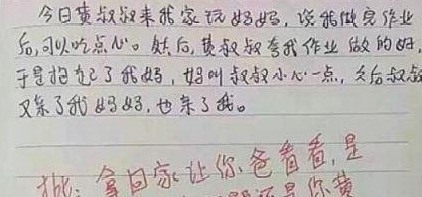 今日黄叔叔来我家玩妈妈,说我做完作业
后,可以吃点心。然后,黄叔叔夸我作业做的好,
于是抱起了我妈,妈叫叔叔小心一点,之后叔叔
又亲了我妈妈,也亲了我。
批:拿回家让你爸看看,是
还是你黄